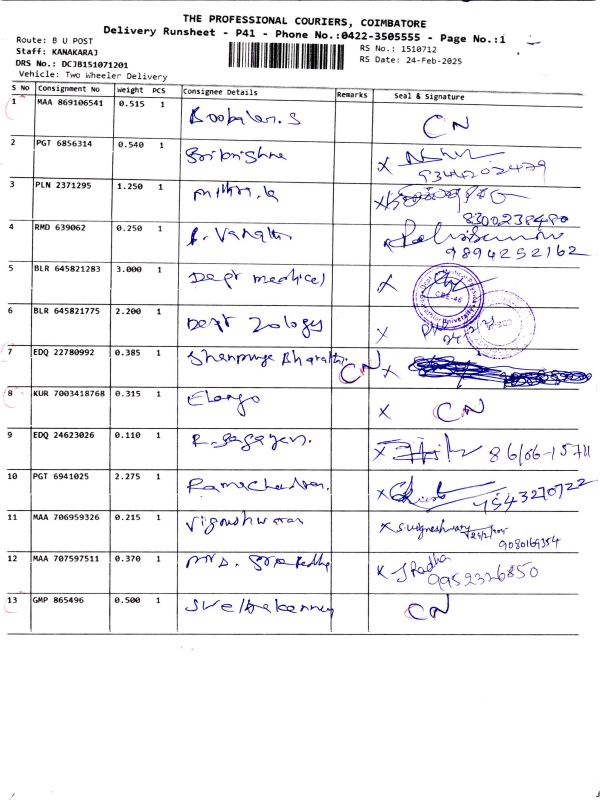 THE PROFESSIONAL COURIERS, COIMBATORE
Delivery Runsheet - P41 - Phone No.:0422-3505555 - Page No.:1
Route: B U POST
RS No.: 1510712
Staff: KANAKARAJ
RS Date: 24-Feb-2025
DRS No.: DCJB151071201
Vehicle: Two Wheeler Delivery
S No Consignment No Weight PCS Consignee Details Remarks Seal & Signature
1 MAA 869106541 0.515 1 CN
2 PGT 6856314 0.540 1 Srikrishna X
3 PLN 2371295 1.250 1 Mithra.k X
8300238480
4 RMD 639062 0.250 1 P. Vanathi
9894252162
5 BLR 645821283 3.000 1 Dept medical X
6 BLR 645821775 2.200 1 Dept Zology X
7 EDQ 22780992 0.385 1 Bharathi CN X
8 KUR 7003418768 0.315 1 Elango X CN
9 EDQ 24623026 0.110 1 X
10 PGT 6941025 2.275 1 Ramachandran. X
11 MAA 706959326 0.215 1 Vigneshwaran X S.Vigneshwary
9080169354
12 MAA 707597511 0.370 1 Mrs. X J Radha
9952326850
13 GMP 865496 0.500 1 CN